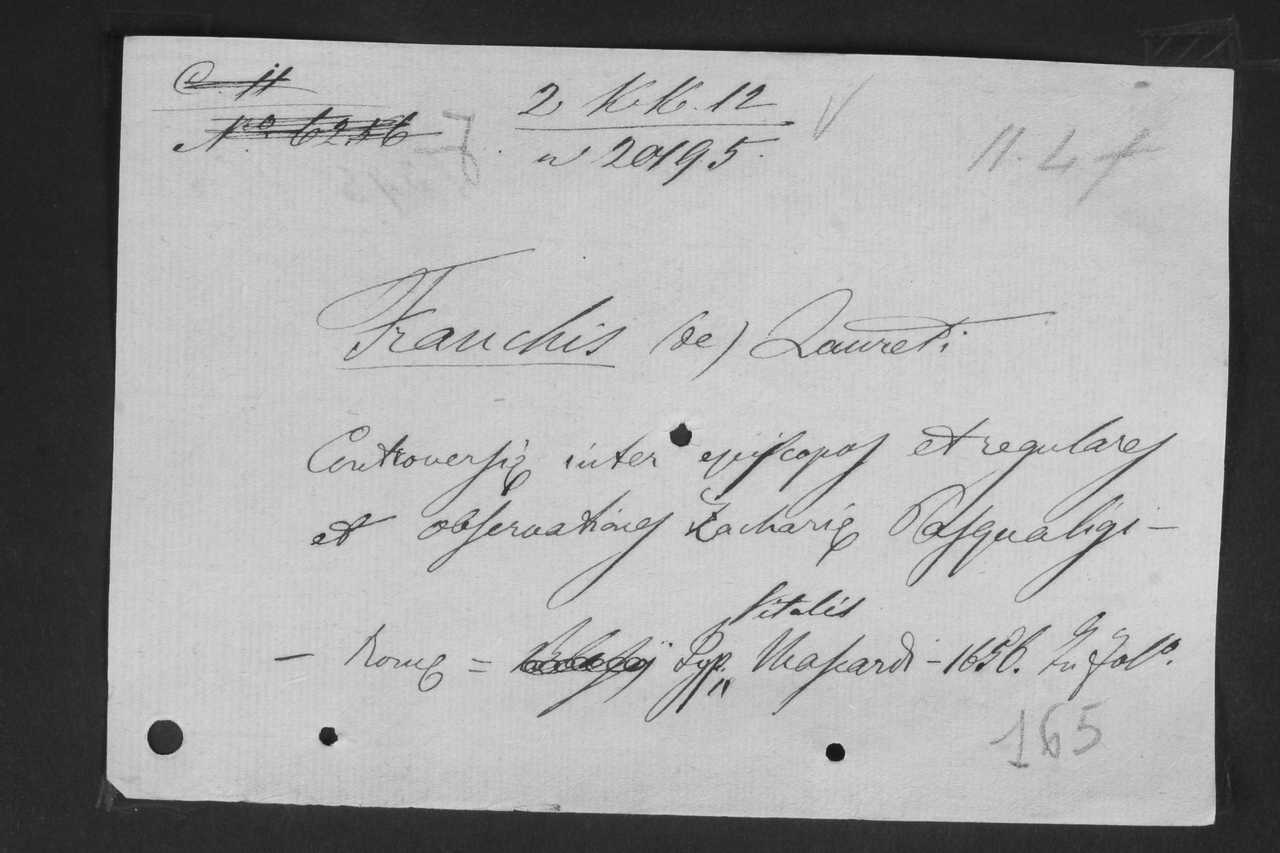 C. 11
2 KK. 12
11. L. f
Nº. 6256
n 20195.
Franchis (de) Laureti
Controversię inter episcopos et regulares
et observationes Zacharię Pasqualigi —
Vitalis
— Romę = Typ. Mascardi — 1656. In folº.
165